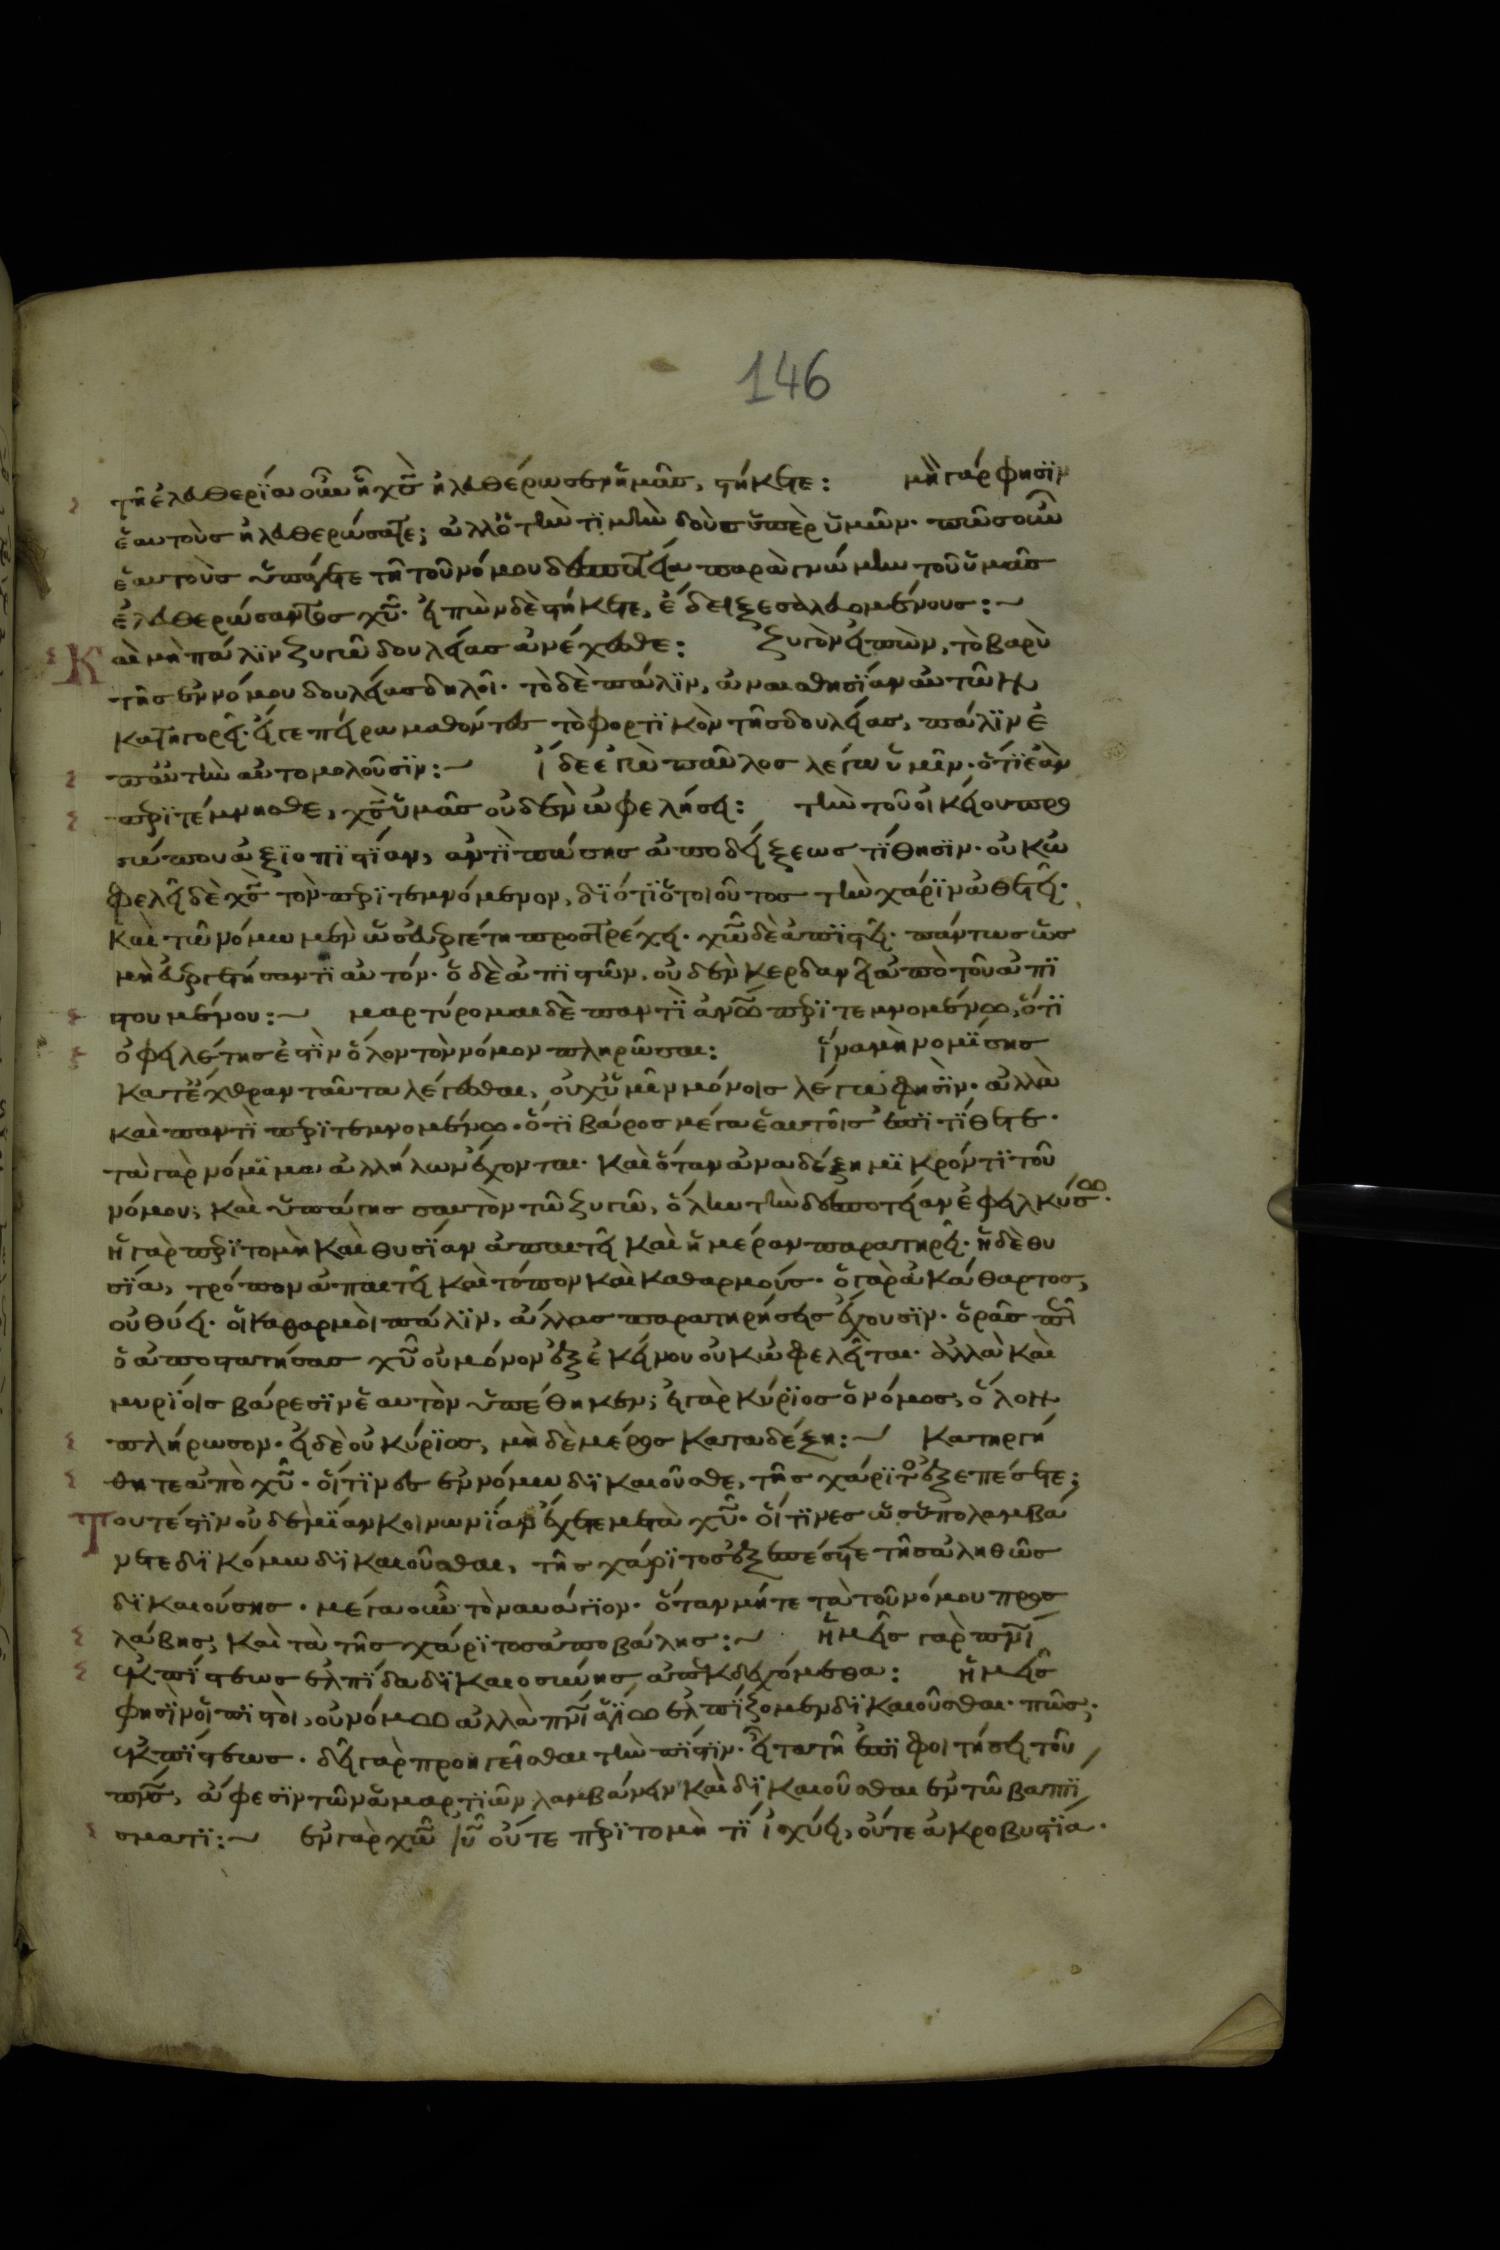 146
τῆ ἐλευθερία οὖν ἧ χς ἠλευθέρωσεν ἡμᾶς, στήκετε: μὴ γάρ φησϊν
ἑαυτοὺς ἠλευθερώσατε; ἄλλος τὴν τιμὴν δοὺς ὑπὲρ ὑμῶν· πῶς οὖν
ἑαυτοὺς ὑπάγετε τῆ τοῦ νόμου δεσποτεία παρὰ γνώμην τοῦ ὑμᾶς
ἐλευθερώσαντος χυ· εἰπὼν δὲ στήκετε, ἔδειξε σαλευομένους:~
Καὶ μὴ πάλϊν ζυγῶ δουλείας ἀνέχεσθε: ζυγὸν εἰπὼν, τὸ βαρὺ
τῆς ἐν νόμου δουλείας δηλοῖ· τὸ δὲ πάλϊν, ἀναισθησίαν αὐτῶν
κατηγορεῖ· εἴγε πείρα μαθόντες τὸ φορτϊκὸν τῆς δουλείας, πάλϊν ἐ
π αὐτὴν αὐτομολοῦσϊν:~ ἴδε ἐγὼ παῦλος λέγω ὑμῖν· ὅτϊ ἐὰν
περϊτέμνησθε, χς ὑμᾶς οὐδὲν ὠφελήσει: τὴν τοῦ οἰκείου προ
σώπου ἀξϊοπιστίαν, ἀντὶ πάσης ἀποδείξεως τίθησϊν· οὐκ ὠ
φελεῖ δὲ χς τὸν περϊτεμνόμενον, δϊότϊ ὁ τοιοῦτος τὴν χάρϊν ἀθετεῖ·
καὶ τῶ νόμω μὲν ὡς εὐεργέτη προστρέχει· χω δὲ ἀπϊστεῖ· πάντως ὡς
μὴ εὐεργετήσαντϊ αὐτόν· ὁ δὲ ἀπϊστῶν, οὐδὲν κερδανεῖ ἀπὸ τοῦ ἀπϊ
στουμένου:~ μαρτύρομαι δὲ παντὶ ἀνω περϊτεμνομένω, ὅτϊ
ὀφειλέτης ἐστὶν ὅλον τὸν νόμον πληρῶσαι: ἵνα μὴ νομίσης
κατ ἔχθραν ταῦτα λέγεσθαι, οὐχ ὑμῖν μόνοις λέγω φησὶν· ἀλλὰ
καὶ παντϊ περϊτεμνομένω· ὅτι βάρος μέγα ἑαυτοῖς ἐπϊτίθετε·
τὰ γὰρ νόμϊμα ἀλλήλων ἔχονται· καὶ ὅταν ἀναδέξη μϊκρόν τϊ τοῦ
νόμου, καὶ ὑπάγης σαυτὸν τῶ ζυγῶ, ὅλην τὴν δεσποτείαν ἐφειλκύσω·
ἡ γὰρ περϊτομὴ καὶ θυσίαν ἀπαιτεῖ καὶ ἡμέραν παρατηρεῖ· ἡ δὲ θυ
σία, τρόπον ἀπαιτεῖ καὶ τόπον καὶ καθαρμούς· ὁ γὰρ ἀκάθαρτος,
οὐ θύει· οἱ καθαρμοὶ πάλϊν, ἄλλας παρατηρήσεις ἔχουσϊν· ὁρᾶς ὅτι
ὁ ἀποστατήσας χυ οὐ μόνον ἐξ ἐκείνου οὐκ ὠφελεῖται· ἀλλὰ καὶ
μυρίοις βάρεσϊν ἑαυτὸν ὑπέθηκεν; εἰ γὰρ κύρϊος ὁ νόμος, ὅλον
πλήρωσον· εἰ δὲ οὐ κύρϊος, μὴ δὲ μέρος καταδέξη:~ κατηργή
θητε ἀπὸ χυ· οἵτϊνες ἐν νόμω δϊκαιοῦσθε, τῆς χάρϊτος ἐξεπέσετε;
Τουτέστϊν οὐδεμίαν κοινωνίαν ἔχετε μετὰ χυ· οἵτϊνες ὡς ὑπολαμβά
νετε δϊκ νόμω δϊκαιοῦσθαι, τῆς χάρϊτος ἐξεπέσετε τῆς ἀληθῶς
δϊκαιούσης· μέγα οὖν τὸ ναυάγϊον· ὅταν μήτε τὰ τοῦ νόμου προς
λάβης, καὶ τὰ τῆς χάρϊτος ἀποβάλης:~ ἡμεῖς γὰρ πνι
ἐκ πίστεως ἐλπίδα δϊκαιοσύνης ἀπεκδεχόμεθα: ἡμεῖς
φησϊν οἱ πϊστοὶ, οὐ νόμω ἀλλὰ πνι ἁγίω ἐλπίζομεν δϊκαιοῦσθαι· πῶς·
ἐκ πίστεως· δεῖ γὰρ προηγεῖσθαι τὴν πίστϊν· εἶτα τῆ ἐπϊφοιτήσει τοῦ
πνς, ἄφεσϊν τῶν ἁμαρτϊῶν λαμβάνειν καὶ δϊκαιοῦσθαι ἐν τῶ βαπτί
σματϊ:~ ἐν γὰρ χω ιυ οὔτε περϊτομὴ τϊ ἰσχύει, οὔτε ἀκροβυστία·